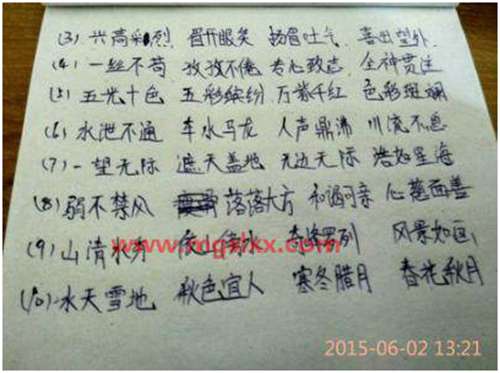 (3) 兴高采烈 眉开眼笑 扬眉吐气 喜出望外
(4) 一丝不苟 孜孜不倦 专心致志 全神贯注
(5) 五光十色 五彩缤纷 万紫千红 色彩斑斓
(6) 水泄不通 车水马龙 人声鼎沸 川流不息
(7) 一望无际 遮天盖地 无边无际 浩如星海
(8) 弱不禁风 落落大方 和谒可亲 心慈面善
(9) 山清水秀 奇峰罗列 风景如画
(10) 水天雪地 秋色宜人 寒冬腊月 春花秋月
www.mgslxx.com
2015-06-02 13:21